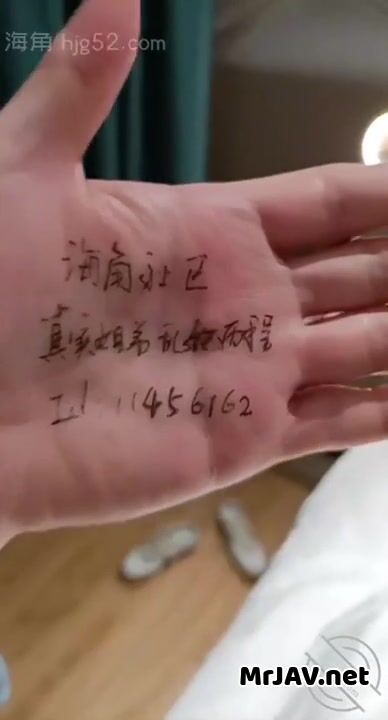 海角 hjg52.com
海角社区
真实姐弟乱伦历程
Id 11456162
MrJAV.net